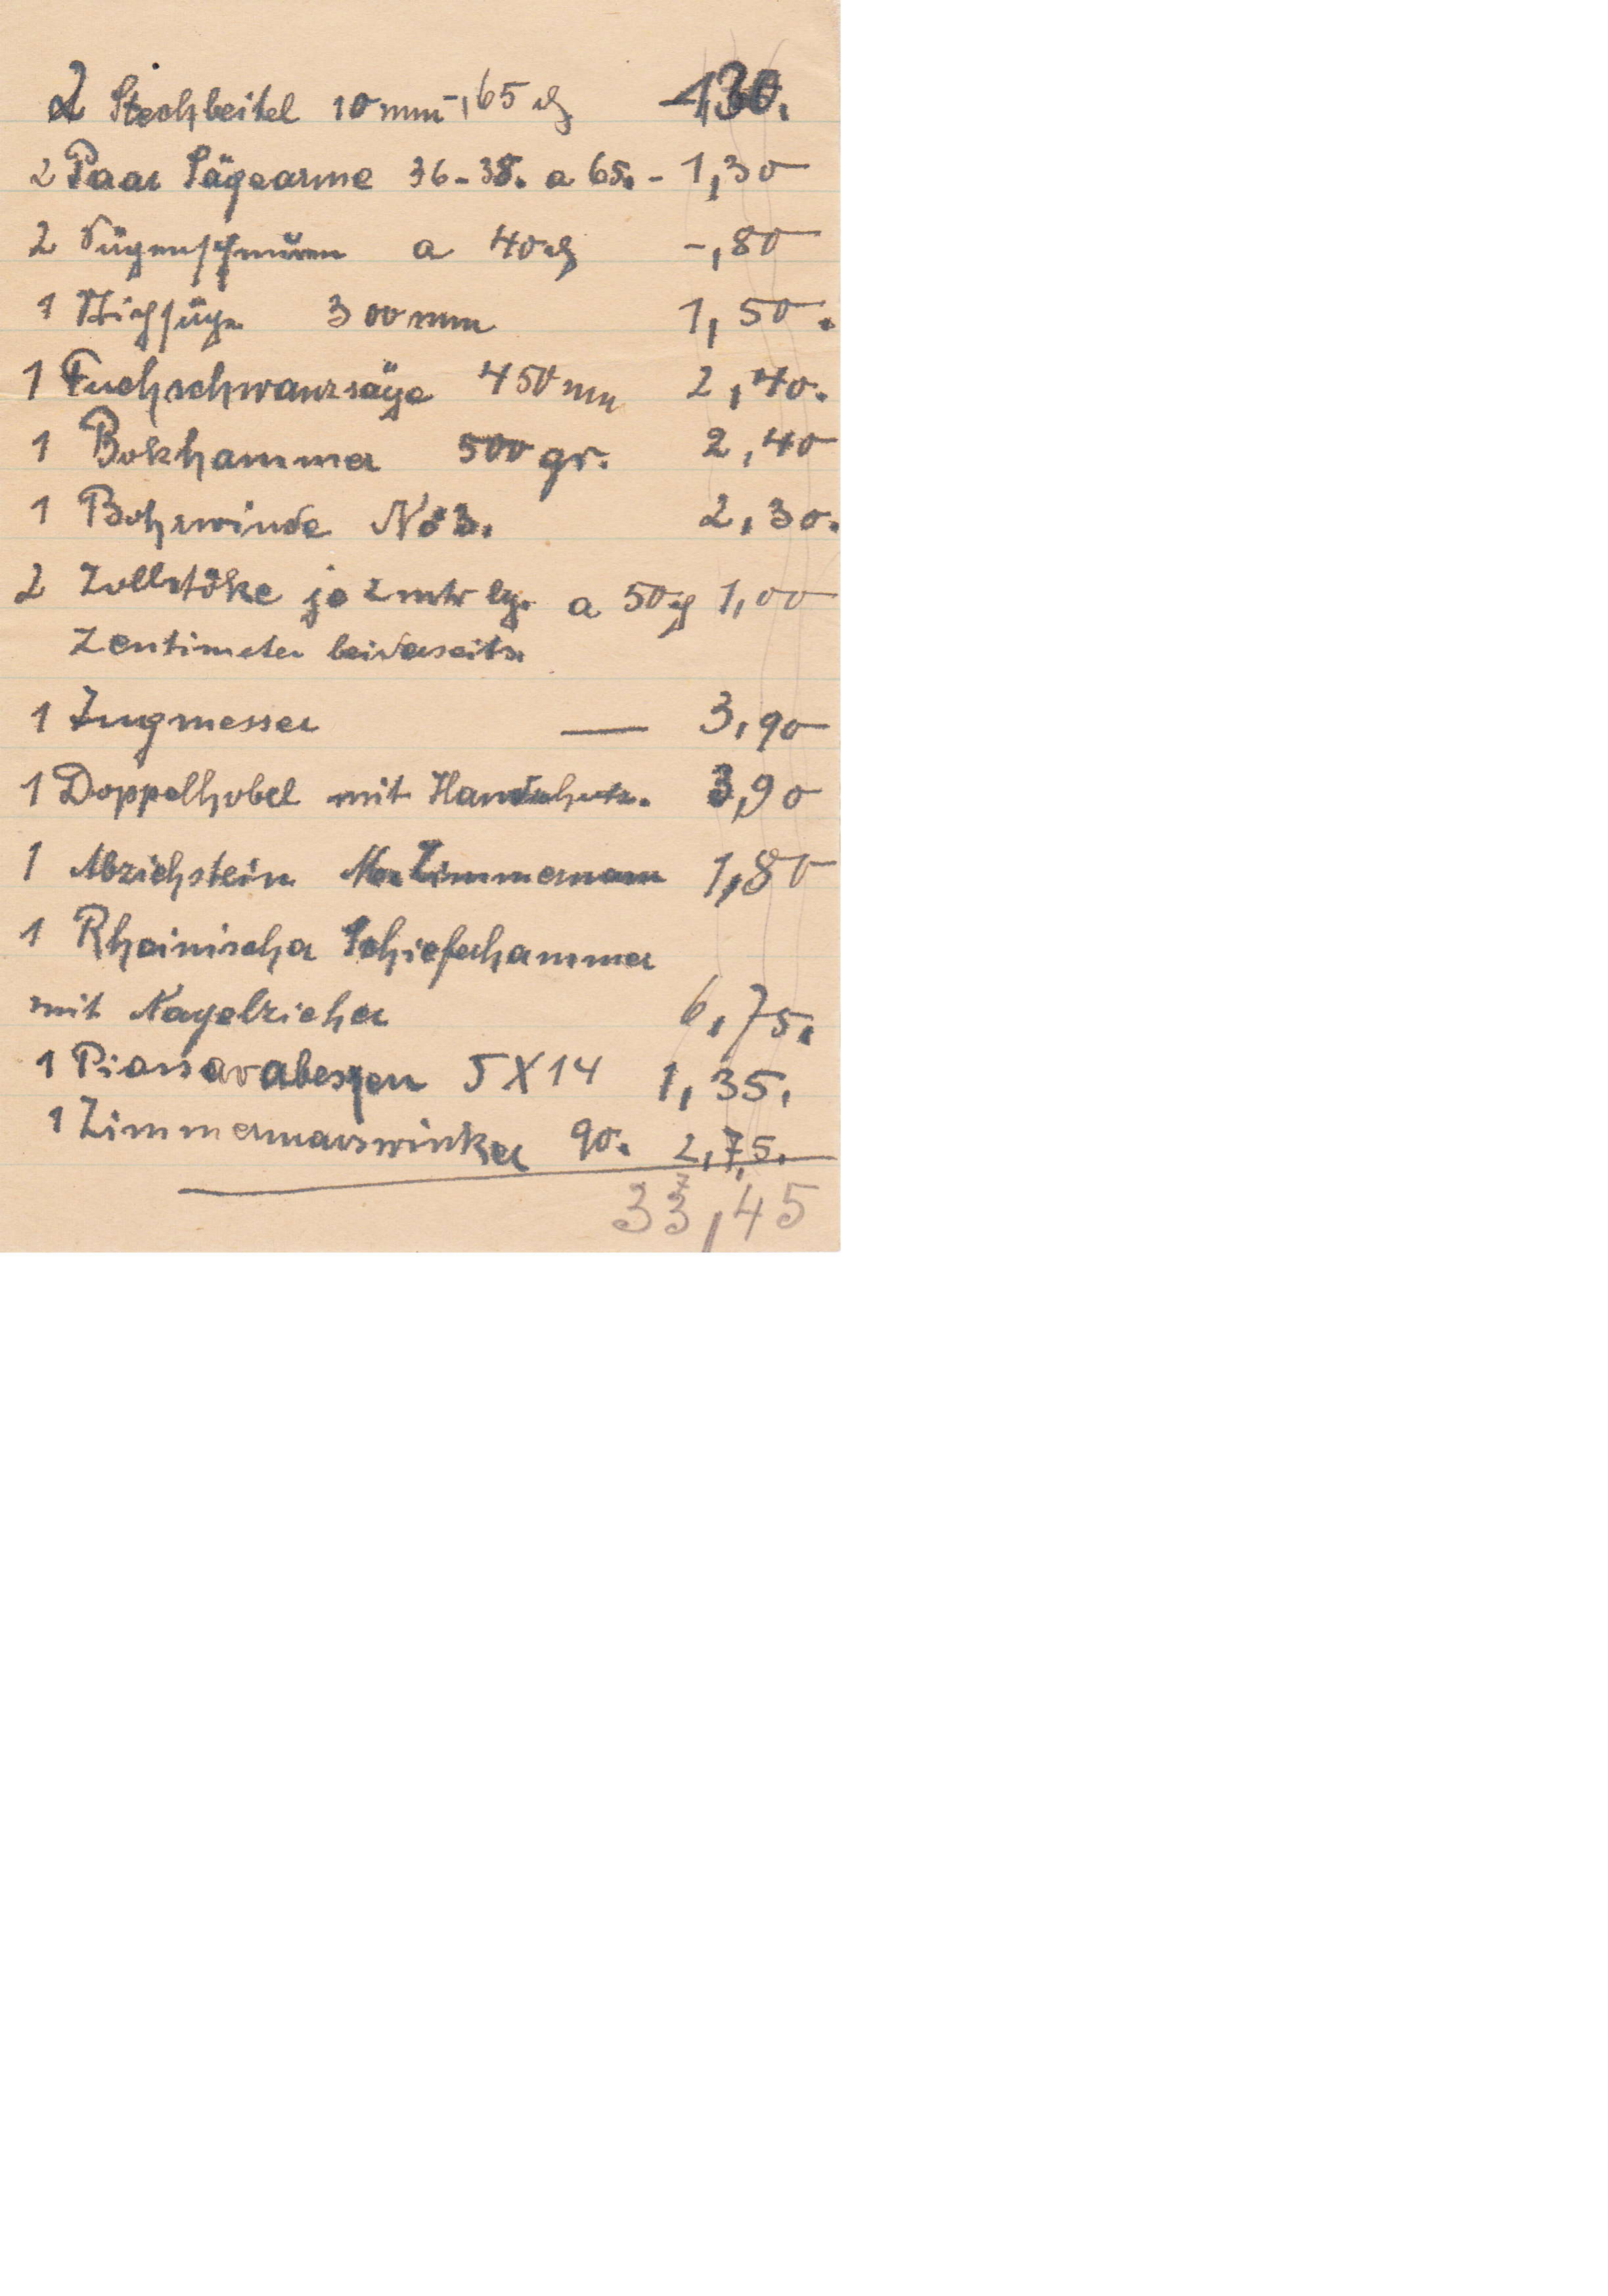 2 Stechbeitel 10 mm -,65 ₰ 1,30.
2 Paar Sägearme 36-38. a 65.- 1,30
2 Sägenschnüren a 40 ₰ -,80
1 Stichsäge 300 mm 1,50.
1 Fuchschwanzsäge 450 mm 2,40.
1 Bokhammer 500 gr. 2,40
1 Bohrwinde No 3. 2,30.
2 Zollstöke je 2 mtr lg. a 50 ₰ 1,00
Zentimeter beiderseits.
1 Zugmesser — 3,90
1 Doppelhobel mit Handschutz. 3,90
1 Abziehstein Zimmermann 1,80
1 Rheinischer Schieferhammer
mit Nagelzieher 6,75.
1 Piassavabesen 5X14 1,35.
1 Zimmermanswinkel 90. 2,75.
33,45